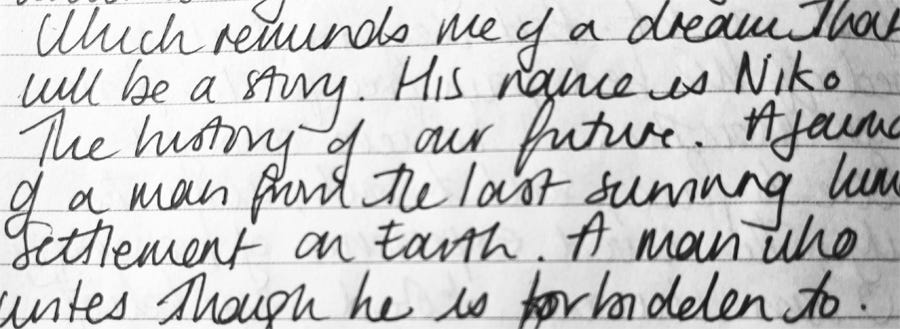 Which reminds me of a dream that
will be a story. His name is Niko
The history of our future. A journ
of a man from the last surviving hum
settlement on Earth. A man who
writes though he is forbidden to.